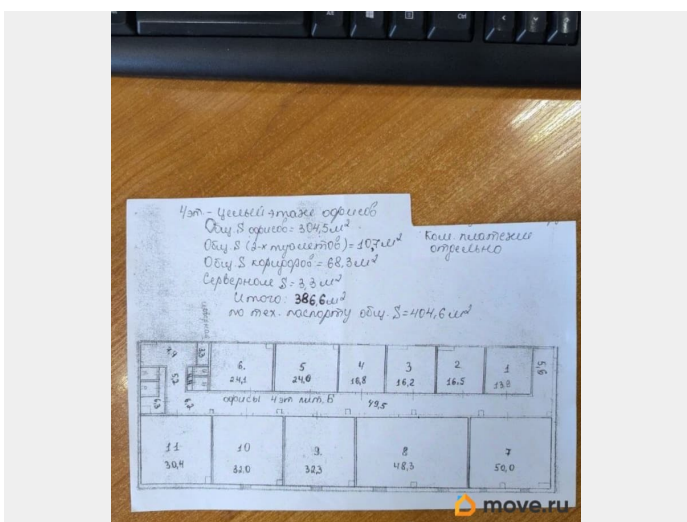 4эт - Целый этаж офисов
Общ. S офисов = 304,5 м²
Общ. S (2-х туалетов) = 10,7 м²
Общ. S коридоров = 68.3 м²
Серверное S = 3,3 м²
Итого: 386,6 м²
по тех. паспорту общ. S = 404,6 м²
Ком. платежи
отдельно
6. 5 4 3 2 1
24,1 24,0 16,8 16,2 16.5 13.8
5,6
офисы 4эт лит. Б
49,5
6,2
11 10 9. 8 7
30,4 32.0 32,3 48,3 50,0
move.ru